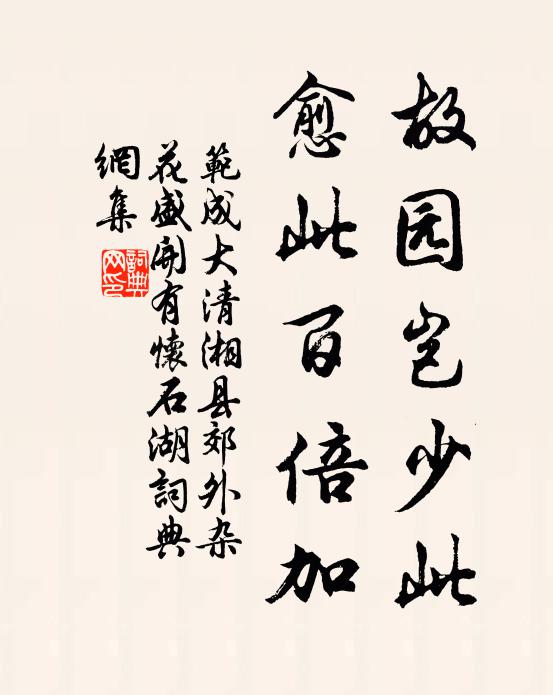 故园岂少此
愈此百倍加
範成大清湘县郊外杂
花盛開有懷石湖詞典
網集
詞典网印